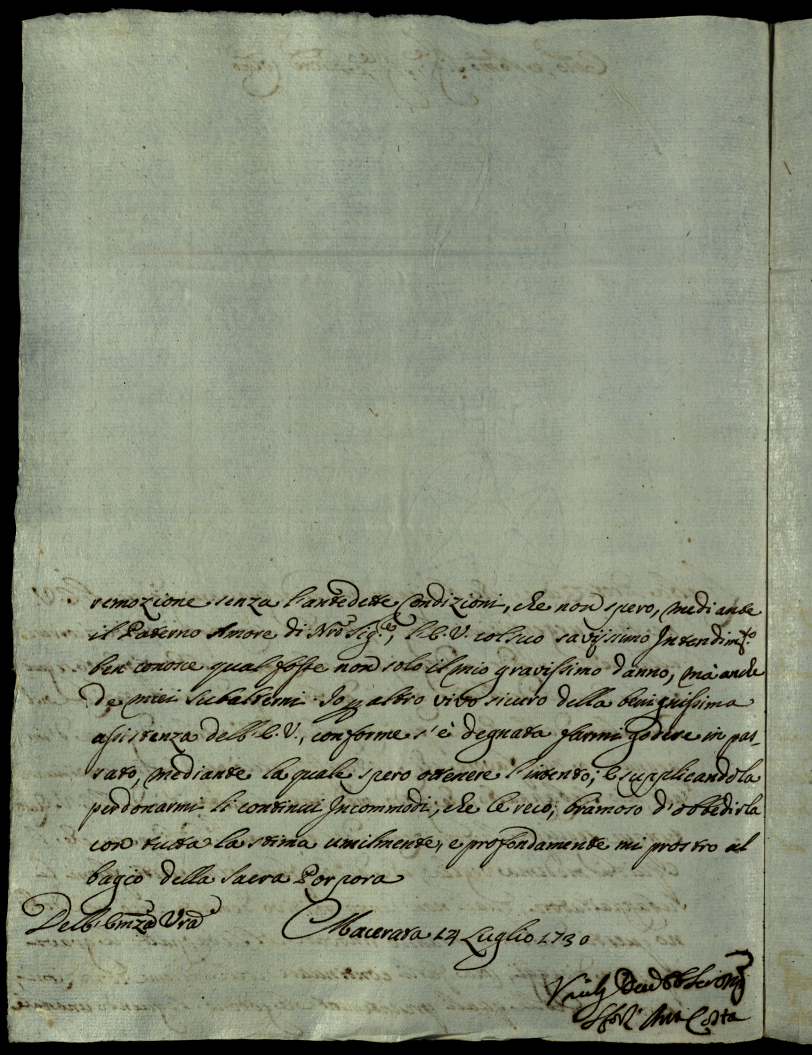 remozione senza l'antedette Condizioni, che non spero, mediante
il Paterno Amore di Nrō Sig.re, l'E.V. col suo savissimo Intendim.to
ben conosce qual fosse non solo il mio gravissimo danno, mà anche
de miei subalterni. Io altro vivo sicuro della benignissima
assistenza dell'E.V., conforme s'è degnata farmi godere in pas-
sato, mediante la quale spero ottenere l'intento; e supplicandola
perdonarmi li continui Incommodi, che le reco, bramoso d'obbedirla
con tutta la stima umilmente, e profondamente mi prostro al
bagio della Sacra Porpora
Dell'Emza Vrā Macerata 14 Luglio 1730
Costa